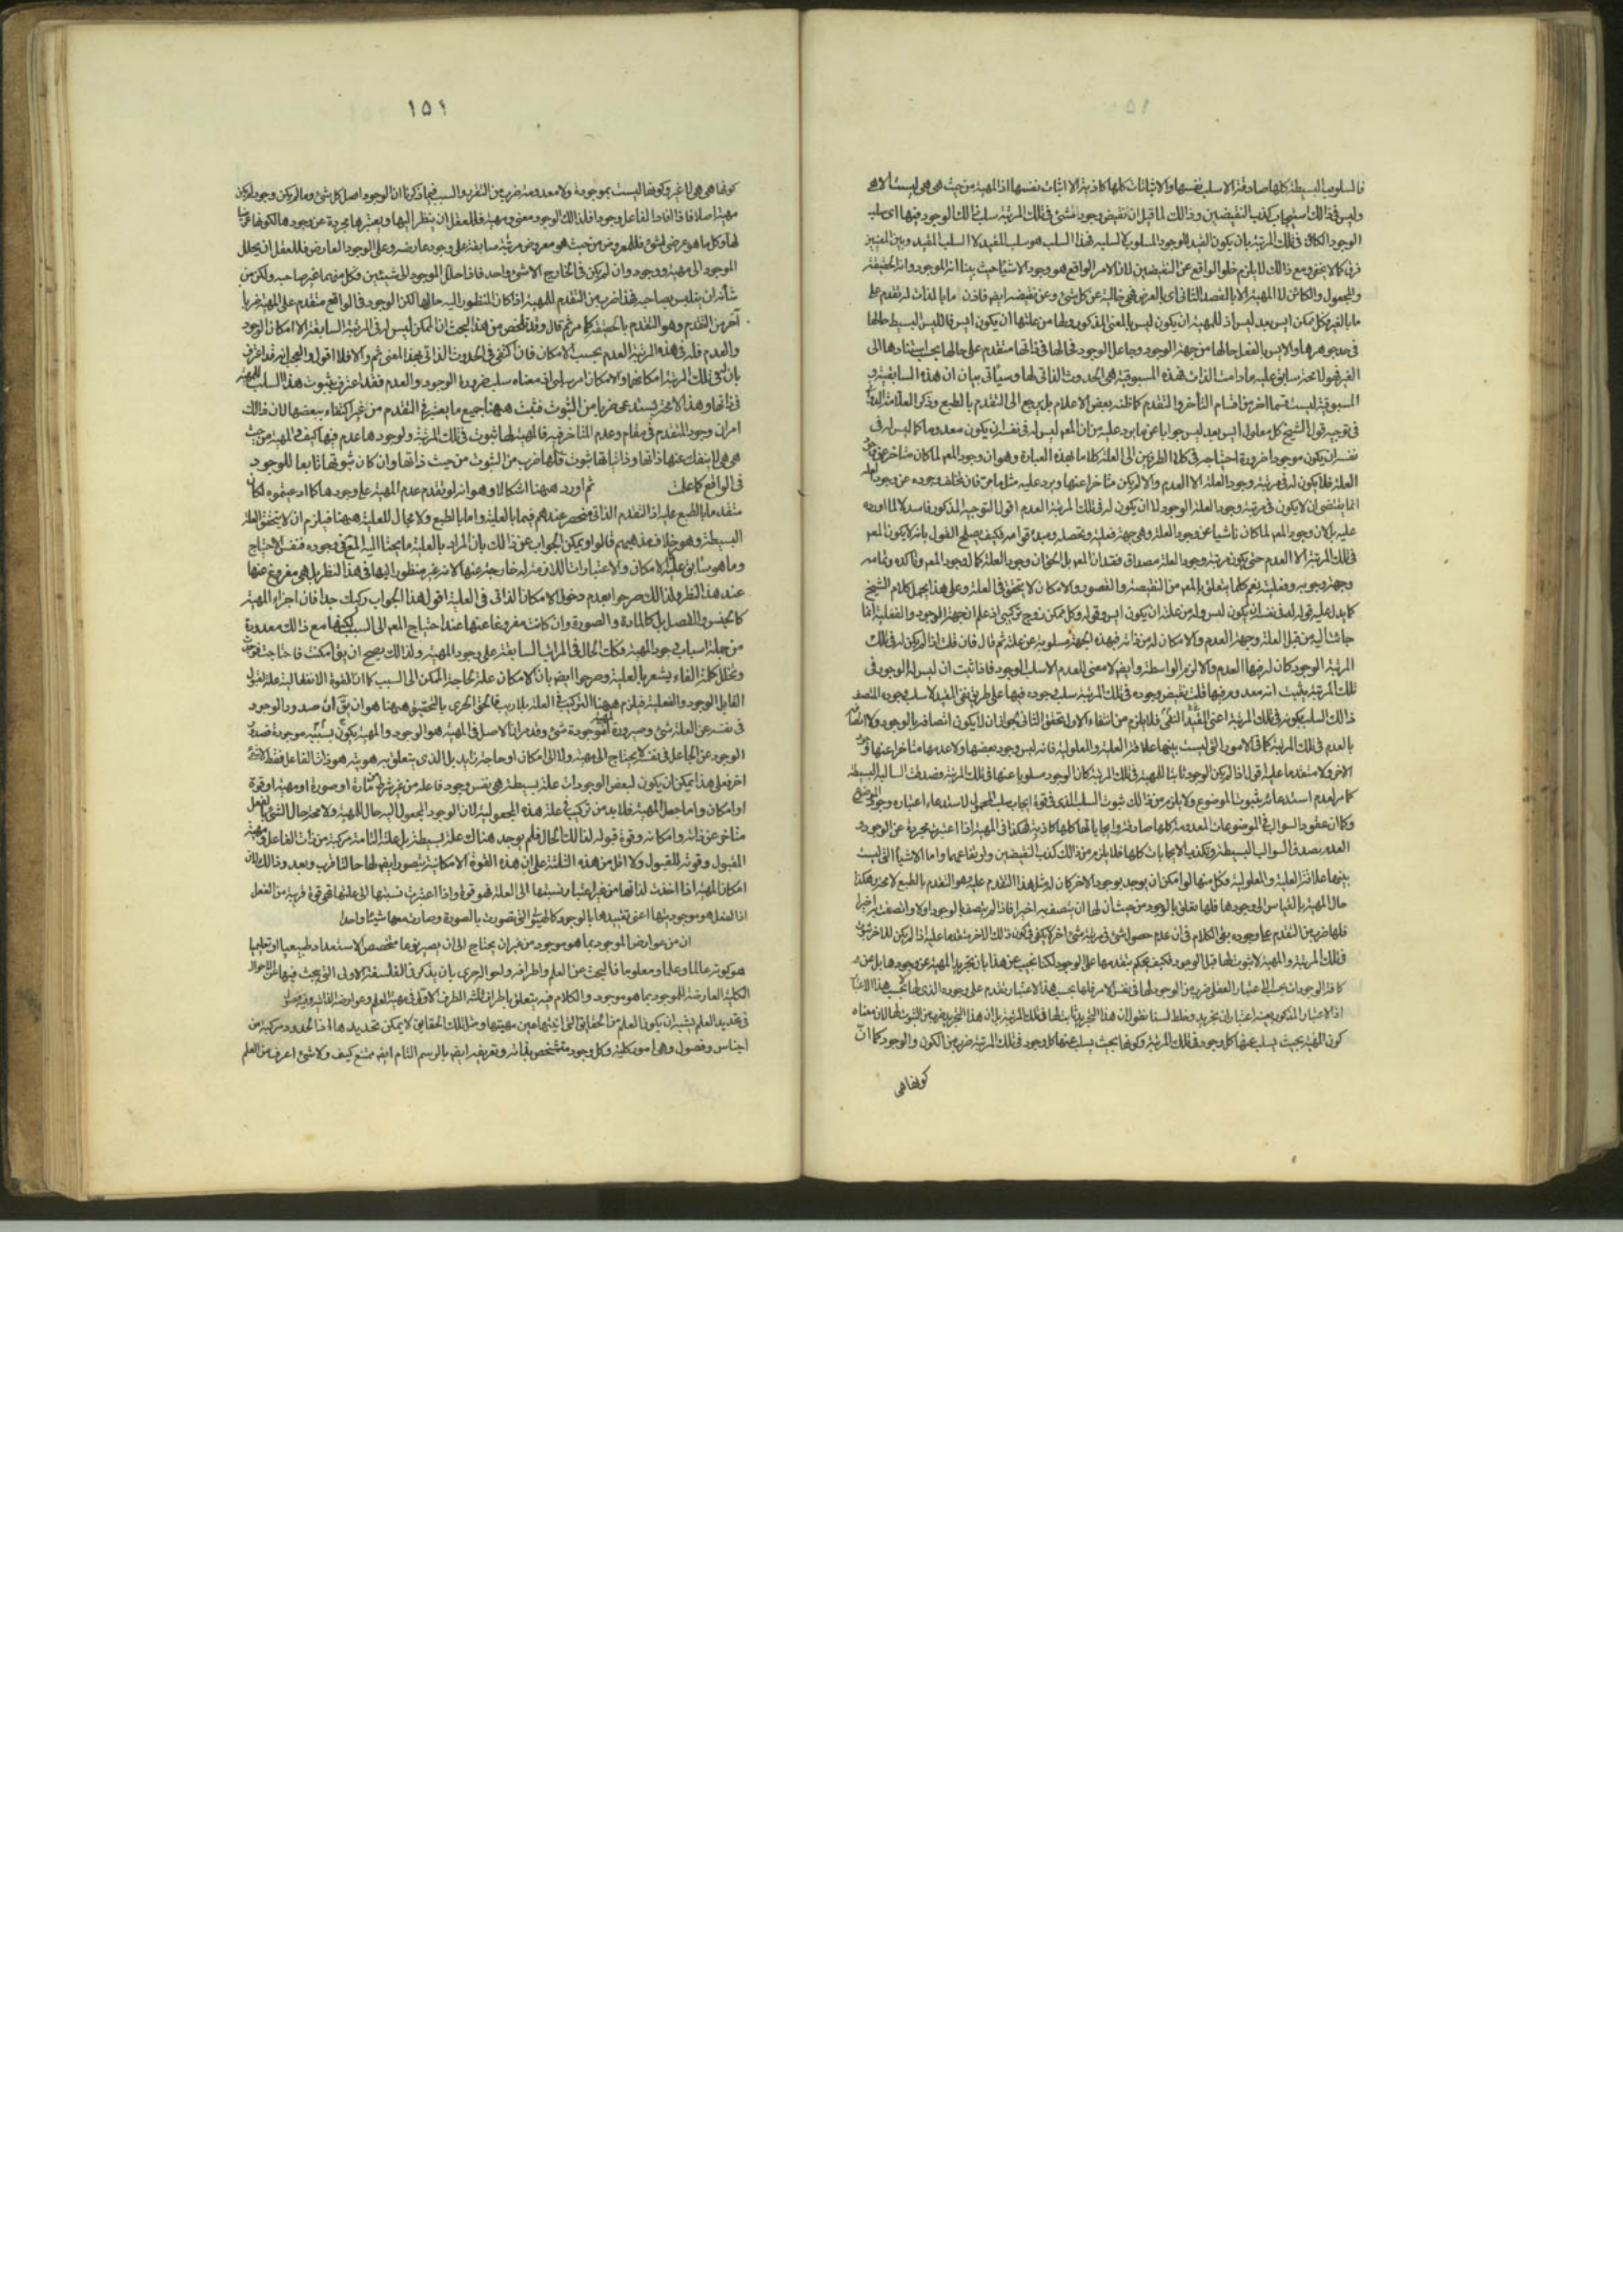 فالسلوب البسيطة كلها صادقة الا سلب نفسها والاثباتات كلها كاذبة الا اثبات نفسها اذ المهية من حيث هي هي ليست الا هي
وليس في ذالك استيجاب كذب النقيضين وذالك لما قيل ان نقيض وجود شئ في تلك المرتبة سلب ذالك الوجود فيها اي سلب
الوجود الكائن في تلك المرتبة بان يكون القيد للوجود المسلوب لا لسلبه فهذا السلب هو سلب المقيد لا السلب المقيد وبين المعنيين
فرق كما لا يخفى ومع ذالك لا يلزم خلو الواقع عن النقيضين لان الامر الواقع هو وجود الاشياء حيث بينا انه الموجود وانه الحقيقة
والمجعول والكائن لا المهية الا بالقصد الثاني اي بالعرض فهي خالية عن كل شئ وعن نقيضه ايضا فاذن ما بالذات له تقدم على
ما بالغير وكل ممكن ايس بعد ليس اذ للمهية ان يكون ليس بالمعنى المذكور ولها من علتها ان يكون ايس فالليس البسيط حالها
في حد جوهرها والايس بالفعل حالها من جهة الوجود وجاعل الوجود فحالها في ذاتها متقدم على حالها بحسب استنادها الى
الغير فهو لا محة سابق عليه ما دامت الذات فهذه المسبوقية هي الحدوث الذاتي لها وسيأتي بيان ان هذه السابقية و
المسبوقية ليست قسما اخر من اقسام التأخر والتقدم كما ظنه بعض الاعلام بل يرجع الى التقدم بالطبع وذكر العلامة الدواني
في توجيه قول الشيخ كل معلول ايس بعد ليس جوابا عن ما يرد عليه من ان المعم ليس له في نفسه ان يكون معدوما كما ليس له في
نفسه ان يكون موجودا ضرورة احتياجه في كلا الطرفين الى العلة كلاما بهذه العبارة وهو ان وجود المعم لما كان متاخرا عن وجود
العلة فلا يكون له في مرتبة وجود العلة الا العدم والا لم يكن متاخرا عنها ويرد عليه مثل ما مر فان تخلف وجوده عن وجود العلة
انما يقتضي ان لا يكون في مرتبة وجود العلة الوجود لا ان يكون له في تلك المرتبة العدم اقول التوجيه المذكور فاسد لا لما اورده
عليه بل لان وجود المعم لما كان ناشيا عن وجود العلة وهي جهة فعلية وتحصله ومبدء قوامه فكيف يصلح القول بانه لا يكون المعم
في تلك المرتبة الا العدم حتى يكون مرتبة وجود العلة مصداق فقدان المعم بل الحق ان وجود العلة كمال وجود المعم وتأكده وتمامه
وجهة وجوبه وفعليته نعم كلما يتعلق بالمعم من النقيصة والقصور والامكان لا يتحقق في العلة وعلى هذا يحمل كلام الشيخ
كما يدل عليه قوله له في نفسه ان يكون ليس وله من علته ان يكون ايس وقوله وكل ممكن زوج تركيبي اذ علم ان جهة الوجود والفعلية انما
جائت اليه من قبل العلة وجهة العدم والامكان له من ذاته فهذه الجهة مسلوبة عن علته ثم قال فان قلت اذا لم يكن له في تلك
المرتبة الوجود كان له فيها العدم والا لزم الواسطة وايضا لا معنى للعدم الا سلب الوجود فاذا ثبت ان ليس له الوجود في
تلك المرتبة يثبت انه معدوم فيها قلت نقيض وجوده في تلك المرتبة سلب وجوده فيها على طريق نفي المقيد لا سلب وجوده المتصف
ذالك السلب بكونه في تلك المرتبة اعني النفي المقيد فلا يلزم من انتفاء الاول تحقق الثاني لجواز ان لا يكون اتصافه بالوجود ولا اتصافه
بالعدم في تلك المرتبة كما في الامور التي ليست بينها علاقة العلية والمعلولية فانه ليس وجود بعضها ولا عدمها متاخرا عنها وجود
الاخر ولا متقدما عليه اقول اذا لم يكن الوجود ثابتا للمهية في تلك المرتبة كان الوجود مسلوبا عنها في تلك المرتبة وصدقت السالبة البسيطة
كما مر لعدم استدعائه ثبوت الموضوع ولا يلزم من ذالك ثبوت السلب الذي في قوة ايجاب سلب المحمول لاستدعاء اعتباره وجود الموضوع
وكما ان عقود السوالب في الموضوعات المعدومة كلها صادقة وايجاباتها كلها كاذبة فهكذا في المهية اذا اعتبرت مجردة عن الوجود و
العدم يصدق السوالب البسيطة ويكذب الايجابات كلها فلا يلزم من ذالك كذب النقيضين ولا ارتفاعهما واما الاشياء التي ليست
بينها علاقة العلية والمعلولية فكل منها لو امكن ان يوجد بوجود الاخر كان له مثل هذا التقدم عليه وهو التقدم بالطبع لا محة وهكذا
حال المهية بالقياس الى وجودها فلها تعلق بالوجود من حيث ان لها ان يتصف به اخيرا فاذا لم يتصف بالوجود اولا واتصف به اخيرا
فلها ضرب من التقدم على وجوده بقي الكلام في ان عدم حصول شئ في مرتبة شئ اخر لا يكفي في كون ذالك الاخر متقدما عليه اذا لم يكن للاخر ثبوت
في تلك المرتبة والمهية لا ثبوت لها قبل الوجود فكيف يحكم بتقدمها على الوجود لكنا نجيب عن هذا بان تجريد المهية عن وجودها بل عن
كافة الوجودات بحسب اعتبار العقل ضرب من الوجود لها في نفس الامر فلها بحسب هذا الاعتبار تقدم على وجوده الذي لها لا بحسب هذا الاعتبار
اذ الاعتبار المذكور بعينه اعتبار ان تجريد وخلط لسنا نقول ان هذا التجريد ثابت لها في تلك المرتبة بل ان هذا التجريد ضرب من الثبوت لها لان معناه
كون المهية بحيث يسلب عنها كل وجود في تلك المرتبة وكونها بحيث يسلب عنها كل وجود في تلك المرتبة ضرب من الكون والوجود كما ان
كونها هي
١٥١
كونها هي هي لا غير وكونها ليست بموجودة ولا معدومة ضرب من التقرر والسبب فيما ذكرنا ان الوجود اصل كل شئ وما لم يكن وجود لم يكن
مهية اصلا فاذا افاد الفاعل وجودا فلذالك الوجود معنى ومهية فللعقل ان ينظر اليها ويعتبرها مجردة عن وجودها لكونها عرضيا
لها وكل ما هو عرضي لشئ فللمعروض من حيث هو معروض مرتبة سابقة على وجود عارضه وعلى الوجود العارض فللعقل ان يحلل
الموجود الى مهية ووجود وان لم يكن في الخارج الا شئ واحد فاذا حلل الموجود الى شيئين فكل منهما غير صاحبه ولكن من
شأنه ان يتلبس بصاحبه فهذا ضرب من التقدم للمهية اذا كان المنظور اليه حالها لكن الوجود في الواقع متقدم على المهية ضربا
آخر من التقدم وهو التقدم بالحقيقة كما مر ثم قال وقد تلخص من هذا البحث ان الممكن ليس له في المرتبة السابقة الا امكان الوجود
والعدم فله في هذه المرتبة العدم بحسب الامكان فان اكتفى في الحدوث الذاتي بهذا المعنى ثم والا فلا اقول والعجب انه قد اعترف
بان في تلك المرتبة امكانهما والامكان امر سلبي اذ معناه سلب ضرورة الوجود والعدم فقد اعترف بثبوت هذا السلب للمهية
في ذاتها وهذا لا محة يستدعى ضربا من الثبوت فثبت ههنا جميع ما يعتبر في التقدم من غير اكتفاء ببعضها لان ذالك
امران وجود المتقدم في مقام وعدم المتاخر فيه فالمهية لها ثبوت في تلك المرتبة ولوجودها عدم فيها كيف والمهية من حيث
هي هي لا ينفك عنها ذاتها وذاتياتها ثبوت فلها ضرب من الثبوت من حيث ذاتها وان كان ثبوتها تابعا للوجود
في الواقع كما علمت ثم اورد ههنا اشكالا وهو انه لو تقدم عدم المهية على وجودها كما ادعيتموه لكان
متقدما بالطبع عليه اذ التقدم الذاتي منحصر عندهم فيما بالعلية وما بالطبع ولا مجال للعلية ههنا فيلزم ان لا يتحقق العلة
البسيطة وهو خلاف مذهبهم قالوا ويمكن الجواب عن ذالك بان المراد بالعلية ما يحتاج اليه المعم في وجوده فنفس الاحتياج
وما هو سابق عليه كالامكان والاعتبارات اللازمة له خارجة عنها لانه غير منظور اليها في هذا النظر بل هي مفروغ عنها
عند هذا النظر ولذالك صرحوا بعدم دخول الامكان الذاتي في العلية اقول هذا الجواب ركيك جدا فان اجزاء المهية
كالجنس والفصل بل كالمادة والصورة وان كانت مفروغا عنها عند احتياج المعم الى السبب لكنها مع ذالك معدودة
من جملة اسباب وجود المهية فكذا الحال في المراتب السابقة على وجود المهية ولذالك يصح ان يق امكنت فاحتاجت فوجدت
وتخلل كلمة الفاء يشعر بالعلية وصرحوا ايضا بان الامكان علة لحاجة الممكن الى السبب كما ان القوة الانفعالية علة لقبول
القابل الوجود والفعلية فيلزم ههنا التركيب في العلة بلا ريب فالحق الحري بالتحقيق ههنا هو ان يق ان صدور الوجود
في نفسه عن العلة شئ وصيرورة المهية موجودة شئ وقد مر ان الاصل في المهية هو الوجود والمهية يكون بسببه موجودة فصدور
الوجود عن الجاعل في نفسه لا يحتاج الى مهية ولا الى امكان او حاجة زايدة بل الذي يتعلق به هويته هو ذات الفاعل فقط لا شئ
اخر فعلى هذا يمكن ان يكون لبعض الوجودات علة بسيطة هي نفس وجود فاعله من غير شرط او مادة او صورة او مهية او قوة
او امكان واما جعل المهية فلا بد من تركيب في علة هذه المجعولية لان الوجود المجعول اليه حال للمهية ولا محة حال الشئ بالفعل
متاخر عن ذاته وامكانه وقوة قبوله لذالك الحال فلم يوجد هناك علة بسيطة بل علته التامة مركبة من ذات الفاعل ومهية
المقبول وقوته للقبول ولا اقل من هذه الثلثة على ان هذه القوة الامكانية يتصور ايضا لها حالتا قرب وبعد وذالك لان
امكان المهية اذا اخذت لذاتها من غير اعتبار نسبتها الى العلة فهو قوة واذا اعتبرت نسبتها الى علتها فهي قوة قريبة من الفعل
اذ الفعل هو موجوديتها اعني تقييدها بالوجود كالهيولى التي تصورت بالصورة وصارت معها شيئا واحدا
ان من عوارض الموجود بما هو موجود من غير ان يحتاج الى ان يصير نوعا متخصص الاستعداد طبيعيا او تعليميا
هو كونه عالما وعلما ومعلوما فالبحث عن العلم واطرافه واحواله حري بان يذكر في الفلسفة الاولى التي يبحث فيها عن الاحوال
الكلية العارضة للموجود بما هو موجود والكلام فيه يتعلق باطراف ثلثة الطرف الاول في مهية العلم وعوارضه الذاتية وفيه فصول
في تحديد العلم يشبه ان يكون العلم من الحقايق التي انيتها عين مهيتها ومثل تلك الحقايق لا يمكن تحديدها اذ الحدود مركبة من
اجناس وفصول وهي امور كلية وكل وجود متشخص بذاته وتعريفه ايضا بالرسم التام ايضا ممتنع كيف ولا شئ اعرف من العلم